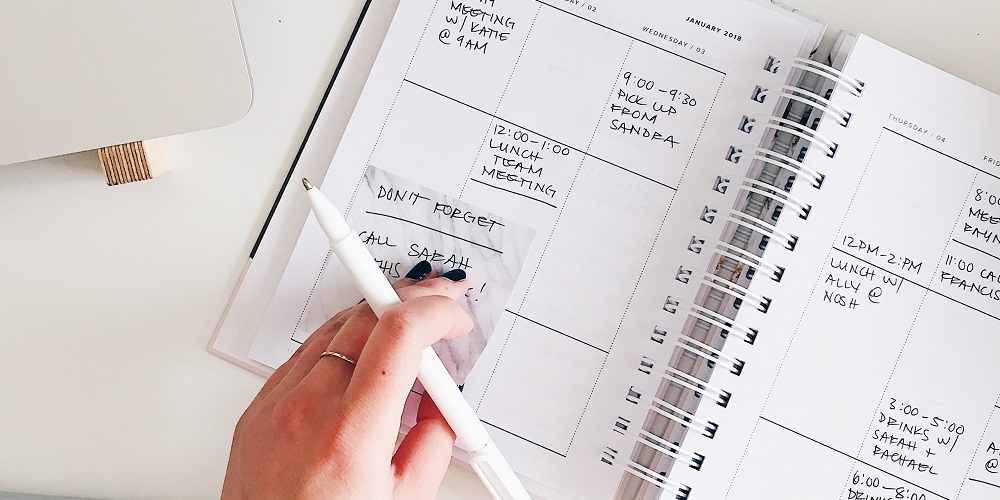 MEETING
W/ KATIE
@ 9AM
/ 02
JANUARY 2018
WEDNESDAY / 03
9:00-9:30
PICK UP
FROM
SANDRA
12:00-1:00
LUNCH
TEAM
MEETING
DON'T FORGET
CALL SARAH
THIS
THURSDAY / 04
12PM-2:PM
LUNCH W/
ALLY @
NOSH
3:00-5:00
DRINKS W/
SARAH +
RACHAEL
6:00-8:00
DRINKS
11:00